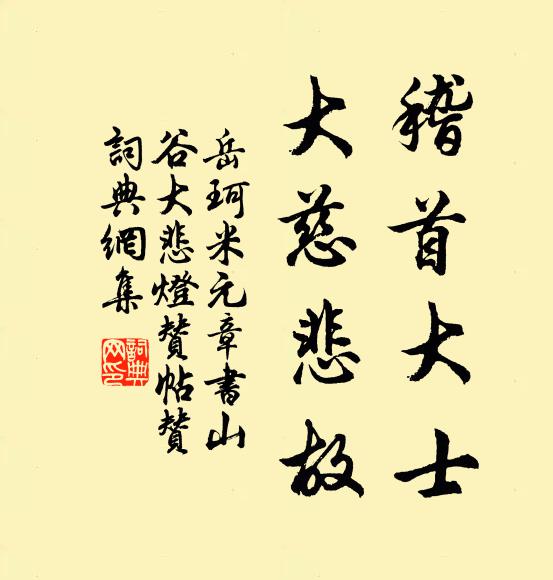 稽首大士
大慈悲故
岳珂米元章書山
谷大悲燈贊帖贊
詞典網集
詞典網印